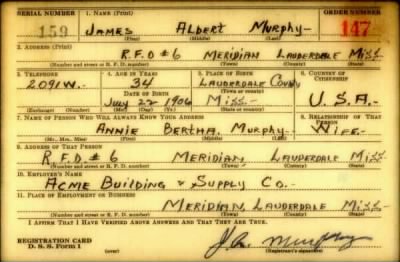 SERIAL NUMBER 1. NAME (Print) ORDER NUMBER
159 JAMES ALBERT MURPHY 147
(First) (Middle) (Last)
2. ADDRESS (Print)
R.F.D #6 MERIDIAN LAUDERDALE MISS
(Number and street or R. F. D. number) (Town) (County) (State)
3. TELEPHONE 4. AGE IN YEARS 5. PLACE OF BIRTH 6. COUNTRY OF CITIZENSHIP
2091W- 34 LAUDERDALE COUNTY
DATE OF BIRTH (Town or county)
JULY 22 1906 MISS- U.S.A-
(Exchange) (Number) (Mo.) (Day) (Yr.) (State or country)
7. NAME OF PERSON WHO WILL ALWAYS KNOW YOUR ADDRESS 8. RELATIONSHIP OF THAT PERSON
ANNIE BERTHA. MURPHY- WIFE-
(Mr., Mrs., Miss) (First) (Middle) (Last)
9. ADDRESS OF THAT PERSON
R.F.D #6 MERIDIAN, LAUDERDALE MISS
(Number and street or R. F. D. number) (Town) (County) (State)
10. EMPLOYER'S NAME
ACME BUILDING & SUPPLY CO.-
11. PLACE OF EMPLOYMENT OR BUSINESS
MERIDIAN, LAUDERDALE MISS-
(Number and street or R. F. D. number) (Town) (County) (State)
I AFFIRM THAT I HAVE VERIFIED ABOVE ANSWERS AND THAT THEY ARE TRUE.
REGISTRATION CARD
D. S. S. FORM 1 J.A. Murphy
(Registrant's signature)